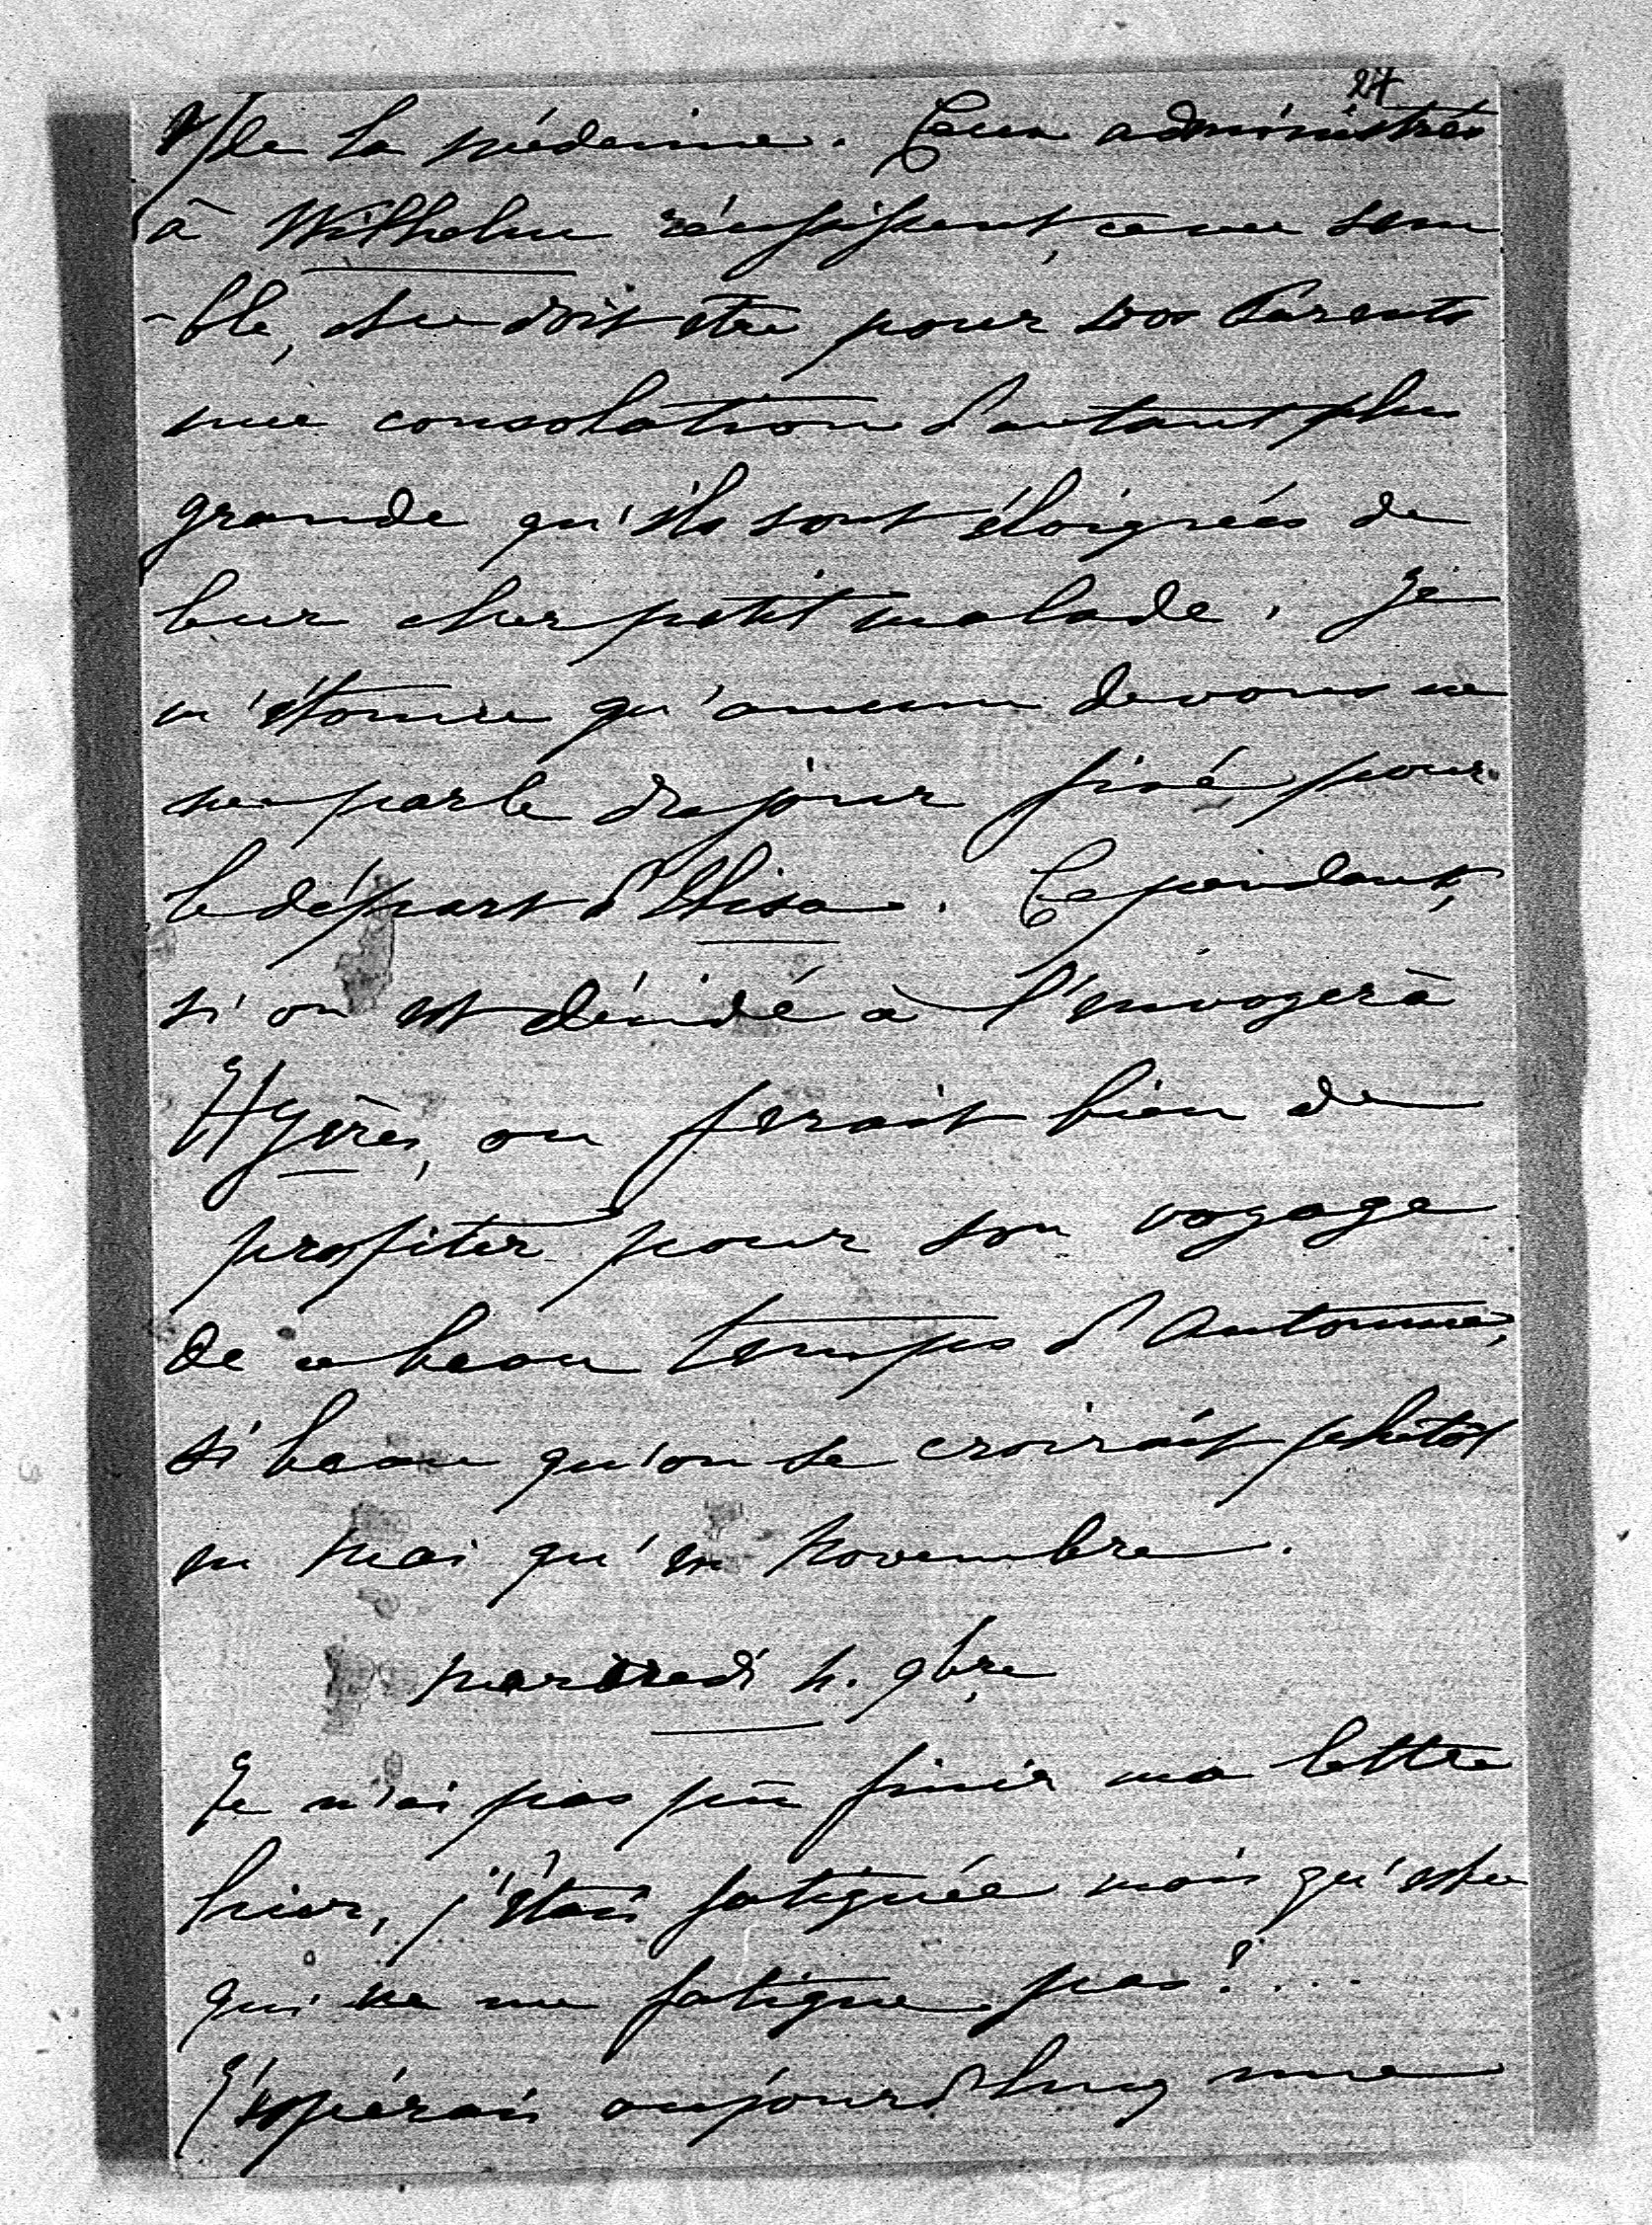 24
2/ de la médecine. Ceux administrés
à Wilhelm réussissent, à ce me sem
-ble, et ce doit être pour vos Parents
une consolation d'autant plus
grande qu'ils sont éloignés de
leur cher petit malade. Je
m'étonne qu'aucun de vous ne
me parle du jour fixé pour
le départ d'Elisa. Cependant,
si on est décidé à l'envoyer à
Hyères, on ferait bien de
profiter pour son voyage
de ce beau temps d'Automne,
si beau qu'on se croirait plutôt
en Mai qu'en Novembre.
mercredi 4. 9bre
Je n'ai pas pû finir ma lettre
hier, j'étais fatiguée mais qu'est ce
qui ne me fatigue pas!...
J'espérais aujourd'huy une